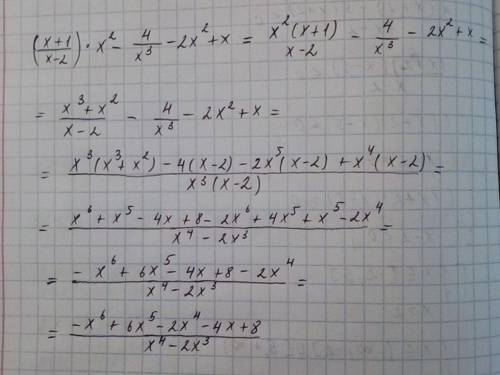 (x+1/x-2) · x² - 4/x³ - 2x² + x = x²(x+1)/x-2 - 4/x³ - 2x² + x =
= x³+x²/x-2 - 4/x³ - 2x² + x =
= x³(x³+x²) - 4(x-2) - 2x⁵(x-2) + x⁴(x-2)/x³(x-2) =
= x⁶ + x⁵ - 4x + 8 - 2x⁶ + 4x⁵ + x⁵ - 2x⁴/x⁴ - 2x³ =
= - x⁶ + 6x⁵ - 4x + 8 - 2x⁴/x⁴ - 2x³ =
= -x⁶ + 6x⁵ - 2x⁴ - 4x + 8/x⁴ - 2x³